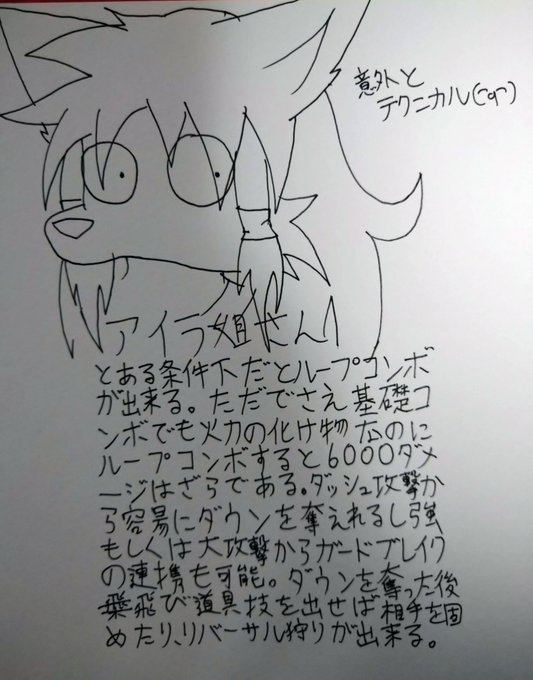 意外と
テクニカル(^q^)
アイラ姐さん！
とある条件下だとループコンボ
が出来る。ただでさえ基礎コ
ンボでも火力の化け物なのに
ループコンボすると6000ダメ
ージはざらである。ダッシュ攻撃か
ら容易にダウンを奪えれるし強
もしくは大攻撃からガードブレイク
の連携も可能。ダウンを奪った後
飛び道具技を出せば相手を固
めたり、リバーサル狩りが出来る。